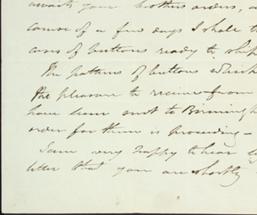 awaits your brothers orders, a
course of a few days I shall t
cases of buttons ready to ship
The pattern of buttons which
the pleasure to receive from
have been sent to Birmingh
order for them is proceeding -
I am very happy to hear by
letter that you are shortly